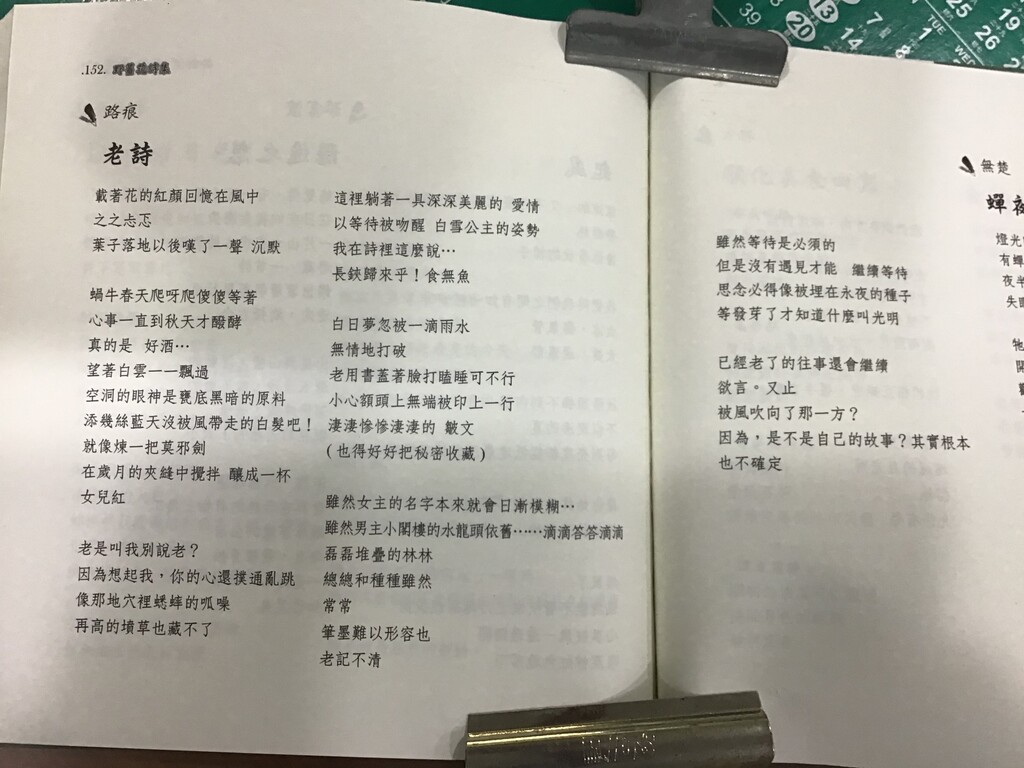 .152. 野薑花詩集
路痕
老詩
載著花的紅顏回憶在風中
之之忐忑
葉子落地以後嘆了一聲 沉默
蝸牛春天爬呀爬傻傻等著
心事一直到秋天才醱酵
真的是 好酒…
望著白雲一一飄過
空洞的眼神是甕底黑暗的原料
添幾絲藍天沒被風帶走的白髮吧！
就像煉一把莫邪劍
在歲月的夾縫中攪拌 釀成一杯
女兒紅
老是叫我別說老？
因為想起我，你的心還撲通亂跳
像那地穴裡蟋蟀的呱噪
再高的墳草也藏不了
這裡躺著一具深深美麗的 愛情
以等待被吻醒 白雪公主的姿勢
我在詩裡這麼說…
長鋏歸來乎！食無魚
白日夢忽被一滴雨水
無情地打破
老用書蓋著臉打瞌睡可不行
小心額頭上無端被印上一行
淒淒慘慘淒淒的 皺文
(也得好好把秘密收藏)
雖然女主的名字本來就會日漸模糊…
雖然男主小閣樓的水龍頭依舊……滴滴答答滴滴
磊磊堆疊的林林
總總和種種雖然
常常
筆墨難以形容也
老記不清
雖然等待是必須的
但是沒有遇見才能 繼續等待
思念必得像被埋在永夜的種子
等發芽了才知道什麼叫光明
已經老了的往事還會繼續
欲言。又止
被風吹向了那一方？
因為，是不是自己的故事？其實根本
也不確定
無楚
蟬
燈光
有蟬
夜半
失
開
39 20 13 14 7 8 1 25 26 19
TUE
WED